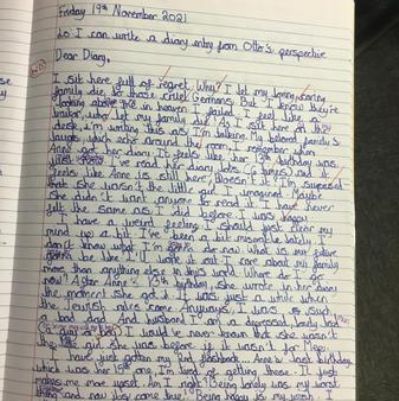 Friday 19th November 2021
Lo: I can write a diary entry from Otto's perspective
Dear Diary,
I sit here full of regret. Why? I let my loving, caring
family die, for those cruel Germans. But I know they're
looking above me in heaven. I failed. I feel like a
traitor, who let my family die. As I sit here on this
desk, I'm writing this as I'm talking. My beloved family's
laughs which echo around the room. I remember when
Anne got her diary. It feels like her 13th birthday was
I've read her diary lots and it
feels like Anne is still here, doesn't it. I'm surprised
that she wasn't the little girl I imagined. Maybe
she didn't want anyone to read it. I have never
felt the same as I did before. I was happy.
I have a weird feeling. I should just clear my
mind up a bit. I've been a bit miserable lately. I
don't know what I'm to do now. What is my future
gonna be like. I'll work it out. I care about my family
more than anything else in this world. Where do I go
now? After Anne's 13th birthday, she wrote in her diary
the moment she got it. It was just a while when
the Jewish rules came. Anyways, I was such
a bad dad and husband. I am a depressed, lonely dad
I would've never known that she wasn't
the girl she was before if it wasn't for Miep.
I have just gotten my 2nd flashback... Anne's last birthday
which was her 15th one, I'm tired of getting these. It just
makes me more upset. Am I right? Being lonely was my worst
thing and now has come true. Being happy is my wish. I